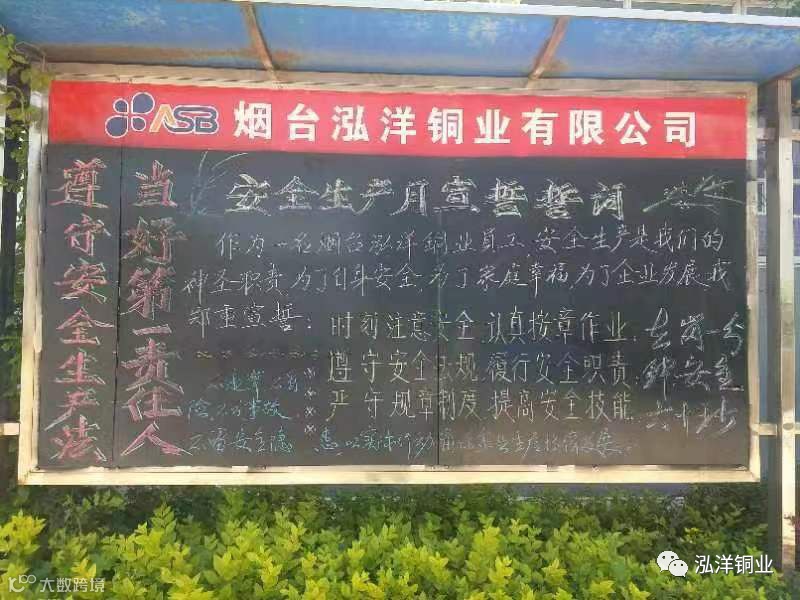 ASB 烟台泓洋铜业有限公司
遵守安全生产法
当好第一责任人
安全生产月宣誓誓词
作为一名烟台泓洋铜业员工,安全生产是我们的
神圣职责,为了自身安全,为了家庭幸福,为了企业发展,我
郑重宣誓:
时刻注意安全,认真按章作业;
遵守安全法规,履行安全职责;
严守规章制度,提高安全技能;
在岗一分
钟安全
六十秒
大数跨境
泓洋铜业